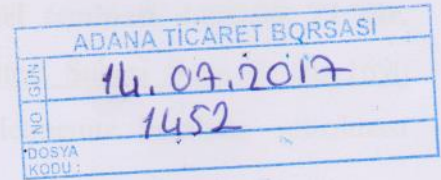 ADANA TİCARET BORSASI
GÜN 14.07.2017
NO 1452
DOSYA
KODU :